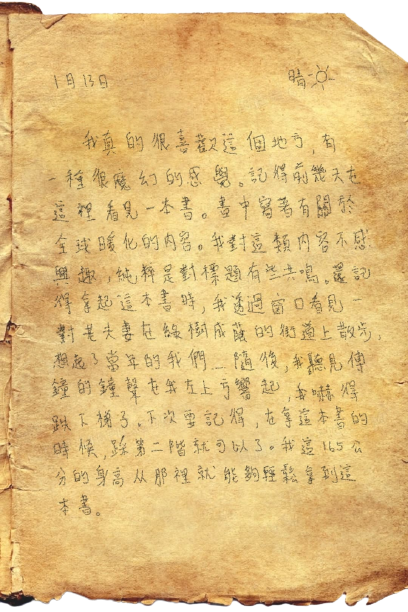 1月13日 晴
我真的很喜歡這個地方,有
一種很魔幻的感覺。記得前幾天在
這裡看見一本書。書中寫著有關於
全球暖化的內容。我對這類內容不感
興趣,純粹是對標題有些共鳴。還記
得拿起這本書時,我透過窗口看見一
對老夫妻在綠樹成蔭的街道上散步,
想起了當年的我們…隨後,我聽見傳
鐘的鐘聲在我左上方響起,我嚇得
跌下梯子,下次要記得,在拿這本書的
時候,踩第二階就可以了。我這165公
分的身高从那裡就能夠輕鬆拿到這
本書。